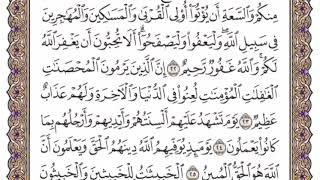 مِنكُمْ وَٱلسَّعَةِ أَن يُؤْتُوٓا۟ أُو۟لِى ٱلْقُرْبَىٰ وَٱلْمَسَـٰكِينَ وَٱلْمُهَـٰجِرِينَ
فِى سَبِيلِ ٱللَّهِ ۖ وَلْيَعْفُوا۟ وَلْيَصْفَحُوٓا۟ ۗ أَلَا تُحِبُّونَ أَن يَغْفِرَ ٱللَّهُ
لَكُمْ ۗ وَٱللَّهُ غَفُورٌ رَّحِيمٌ ٢٢ إِنَّ ٱلَّذِينَ يَرْمُونَ ٱلْمُحْصَنَـٰتِ
ٱلْغَـٰفِلَـٰتِ ٱلْمُؤْمِنَـٰتِ لُعِنُوا۟ فِى ٱلدُّنْيَا وَٱلْـَٔاخِرَةِ وَلَهُمْ عَذَابٌ
عَظِيمٌ ٢٣ يَوْمَ تَشْهَدُ عَلَيْهِمْ أَلْسِنَتُهُمْ وَأَيْدِيهِمْ وَأَرْجُلُهُم بِمَا
كَانُوا۟ يَعْمَلُونَ ٢٤ يَوْمَئِذٍ يُوَفِّيهِمُ ٱللَّهُ دِينَهُمُ ٱلْحَقَّ وَيَعْلَمُونَ أَنَّ
ٱللَّهَ هُوَ ٱلْحَقُّ ٱلْمُبِينُ ٢٥ ٱلْخَبِيثَـٰتُ لِلْخَبِيثِينَ وَٱلْخَبِيثُونَ